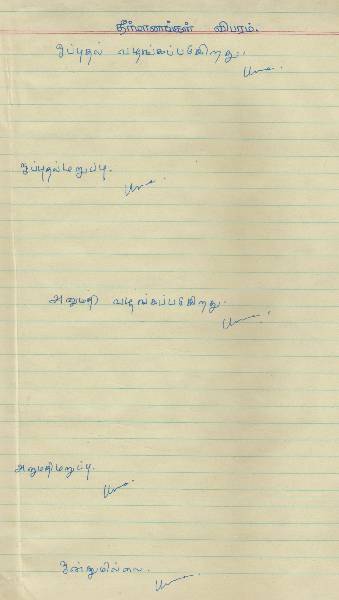 தீர்மானங்கள் விபரம்.
ஒப்புதல் வழங்கப்படுகிறது.
ஒப்புதல் மறுப்பு.
அனுமதி வழங்கப்படுகிறது.
அனுமதி மறுப்பு.
ஒன்றுமில்லை.